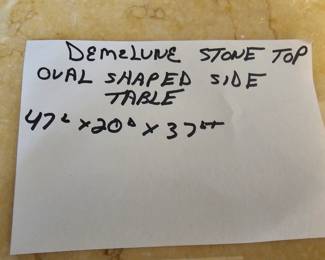 DEMELUNE STONE TOP
OVAL SHAPED SIDE
TABLE
47L x 20D x 37HT